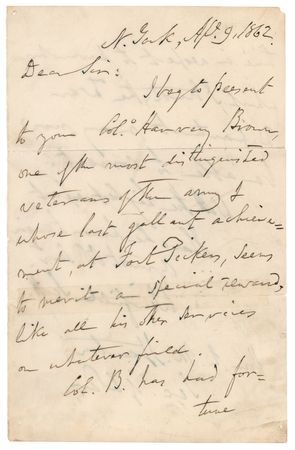 N. York, Apl. 9, 1862.
Dear Sir:
I beg to present
to you Col. Harvey Brown,
one of the most distinguished
veterans of the army &
whose last gallant achieve-
ment, at Fort Pickens, seems
to merit a special reward,
like all his other services
on whatever field.
Col. B. has had for-
tune